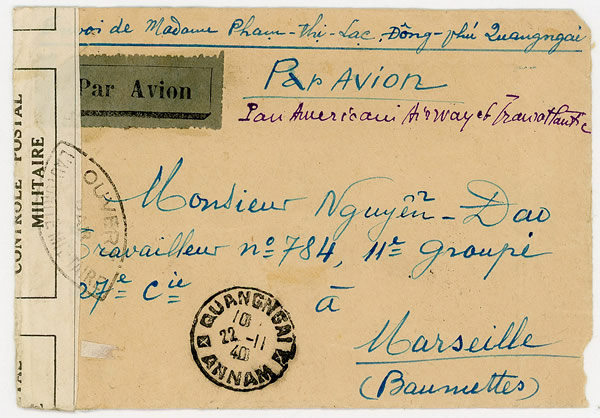 voi de Madame Phạm-thị-Lạc, Đông-phú Quangngai
Par Avion
Par Avion
Pan Americani Airway et Transatlantic
CONTRÔLE POSTAL
MILITAIRE
OUVERT
PAR
L'AUTORITÉ MILITAIRE
Monsieur Nguyễn-Dao
travailleur nº 784, 11e groupe
27e Cie
à
Marseille
(Baumettes)
QUANGNGAI
10
22 -11
40
ANNAM